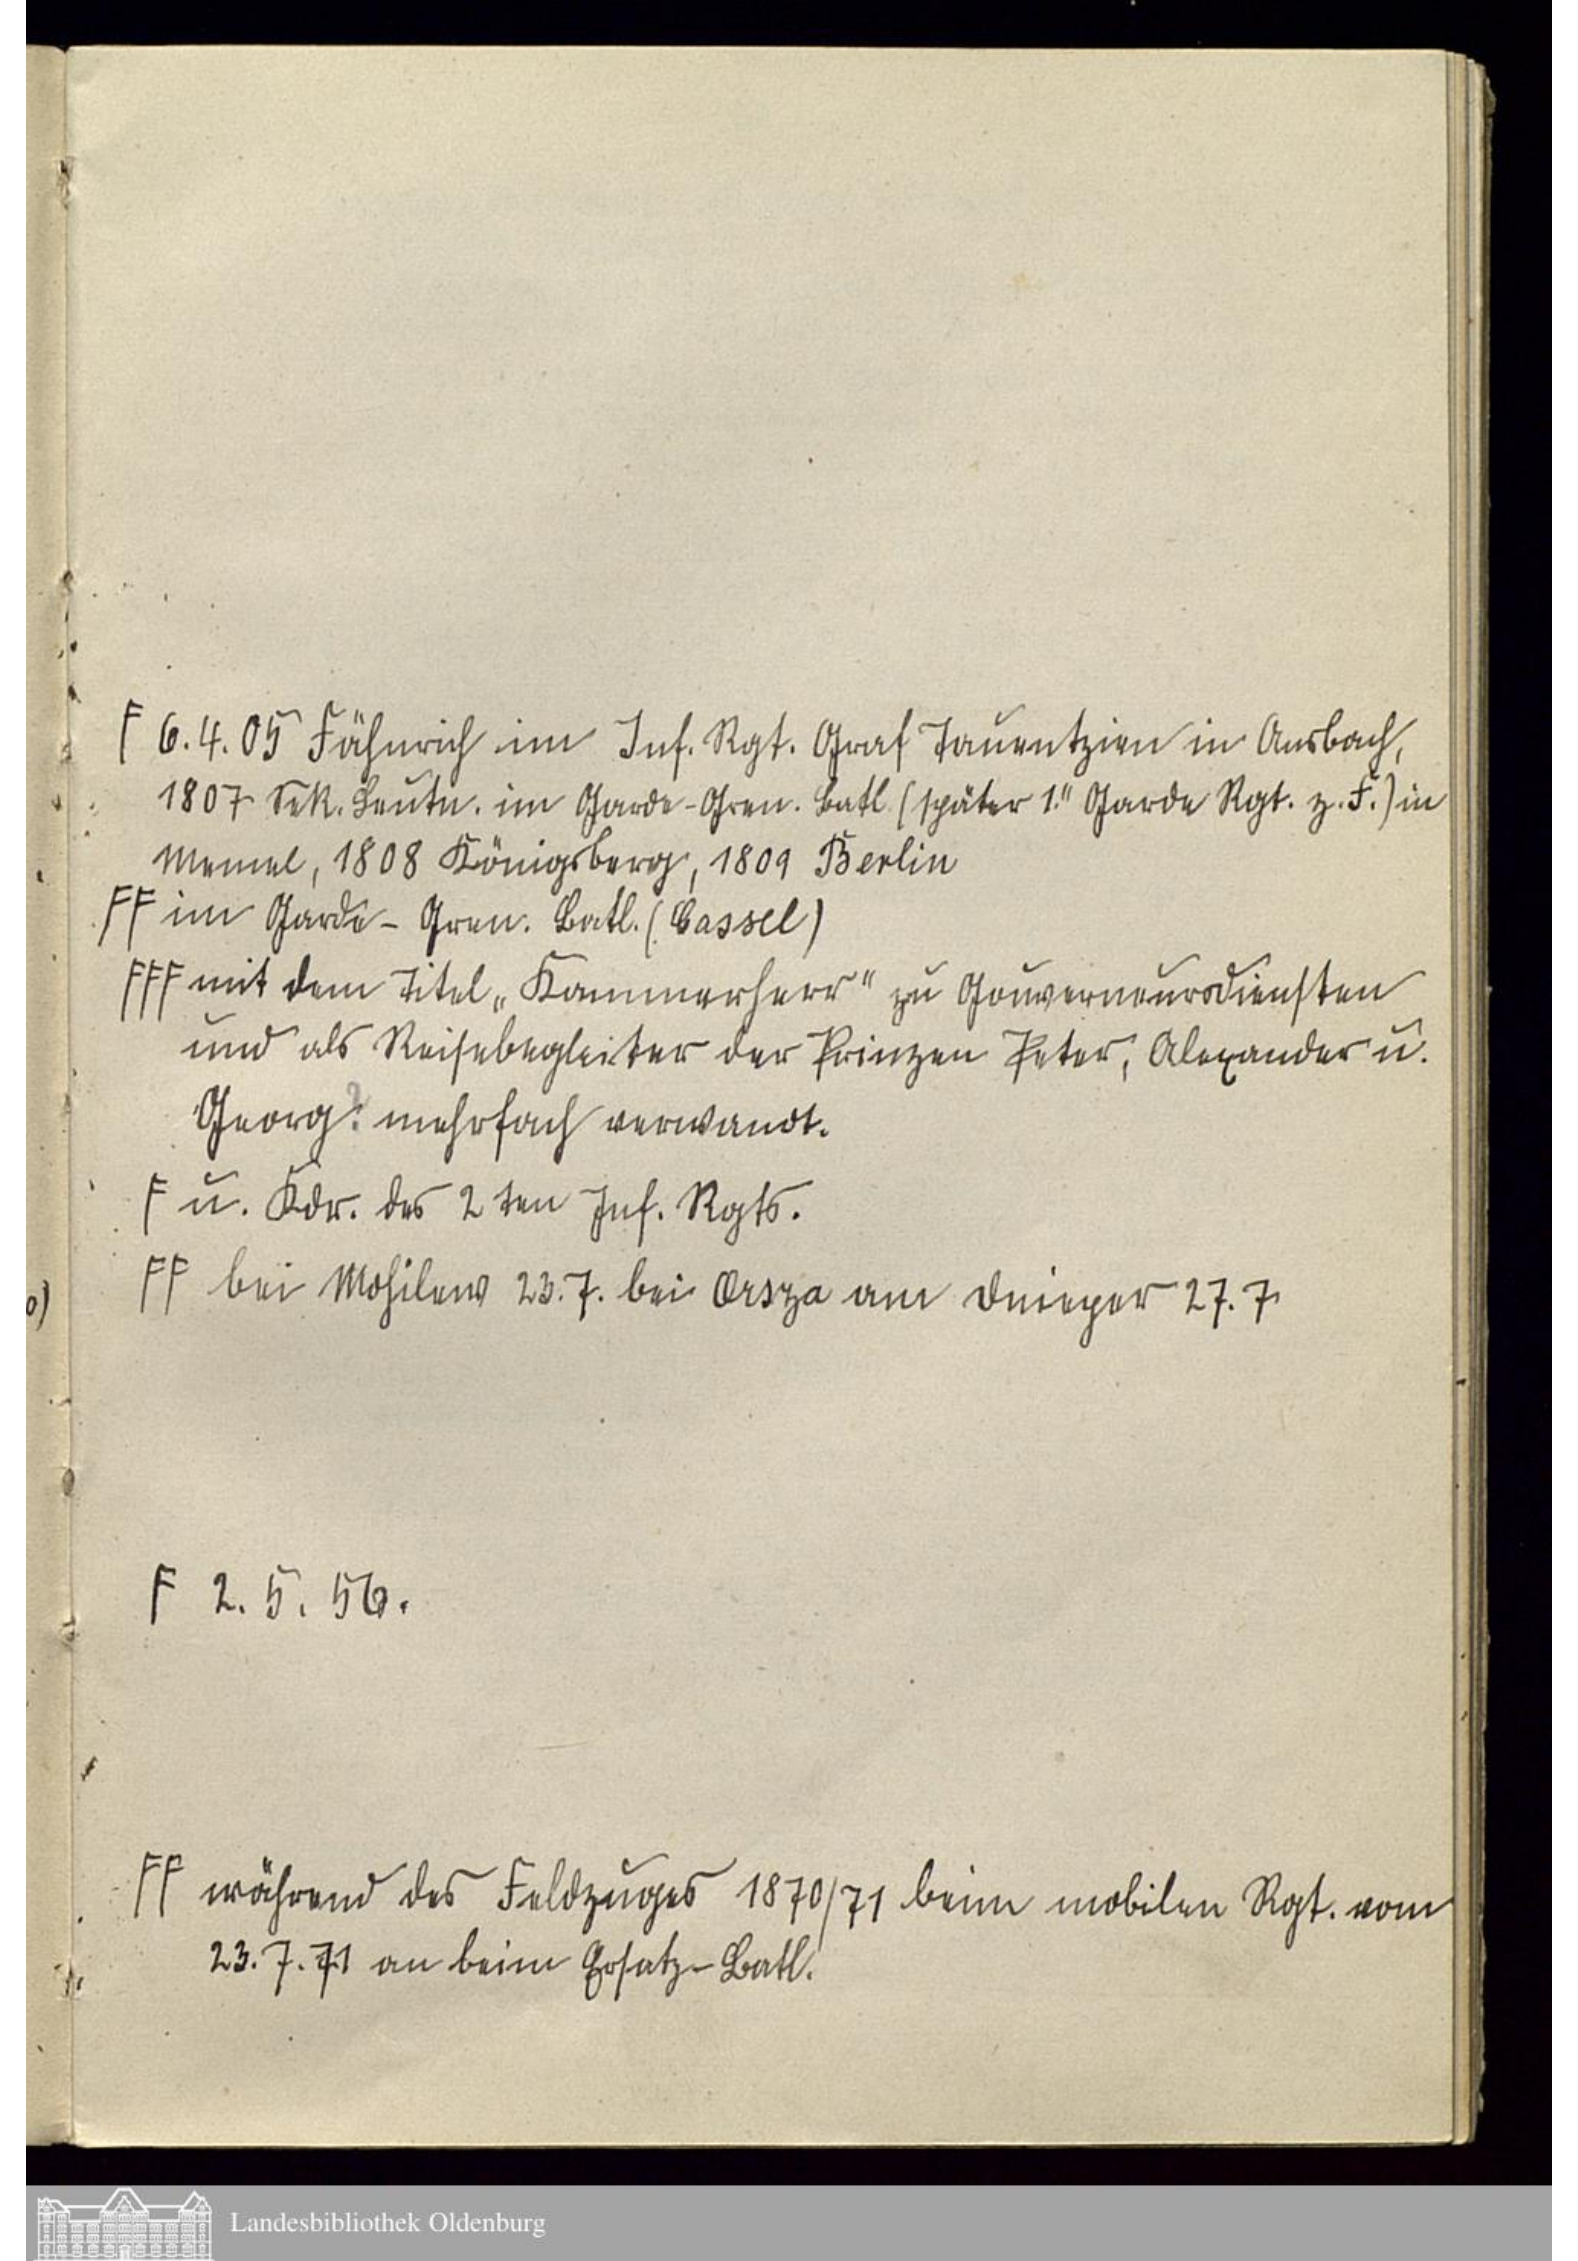 F 6.4.05 Fähnrich im Inf. Rgt. Graf Tauentzien in Ansbach,
1807 Sek. Leutn. im Garde-Gren. Batl (später 1." Garde Rgt. z. F.) in
Memel, 1808 Königsberg, 1809 Berlin
FF im Garde-Gren. Batl. (Cassel)
FFF mit dem Titel „Kammerherr" zu Gouverneursdiensten
und als Reisebegleiter der Prinzen Peter, Alexander u.
Georg? mehrfach verwandt.
F u. Kdr. des 2ten Inf. Rgts.
FF bei Mohilew 23.7. bei Orsza am Dnieper 27.7
o)
F 2.5.56.
FF während des Feldzuges 1870/71 beim mobilen Rgt. vom
23.7.71 an beim Ersatz-Batl.
Landesbibliothek Oldenburg